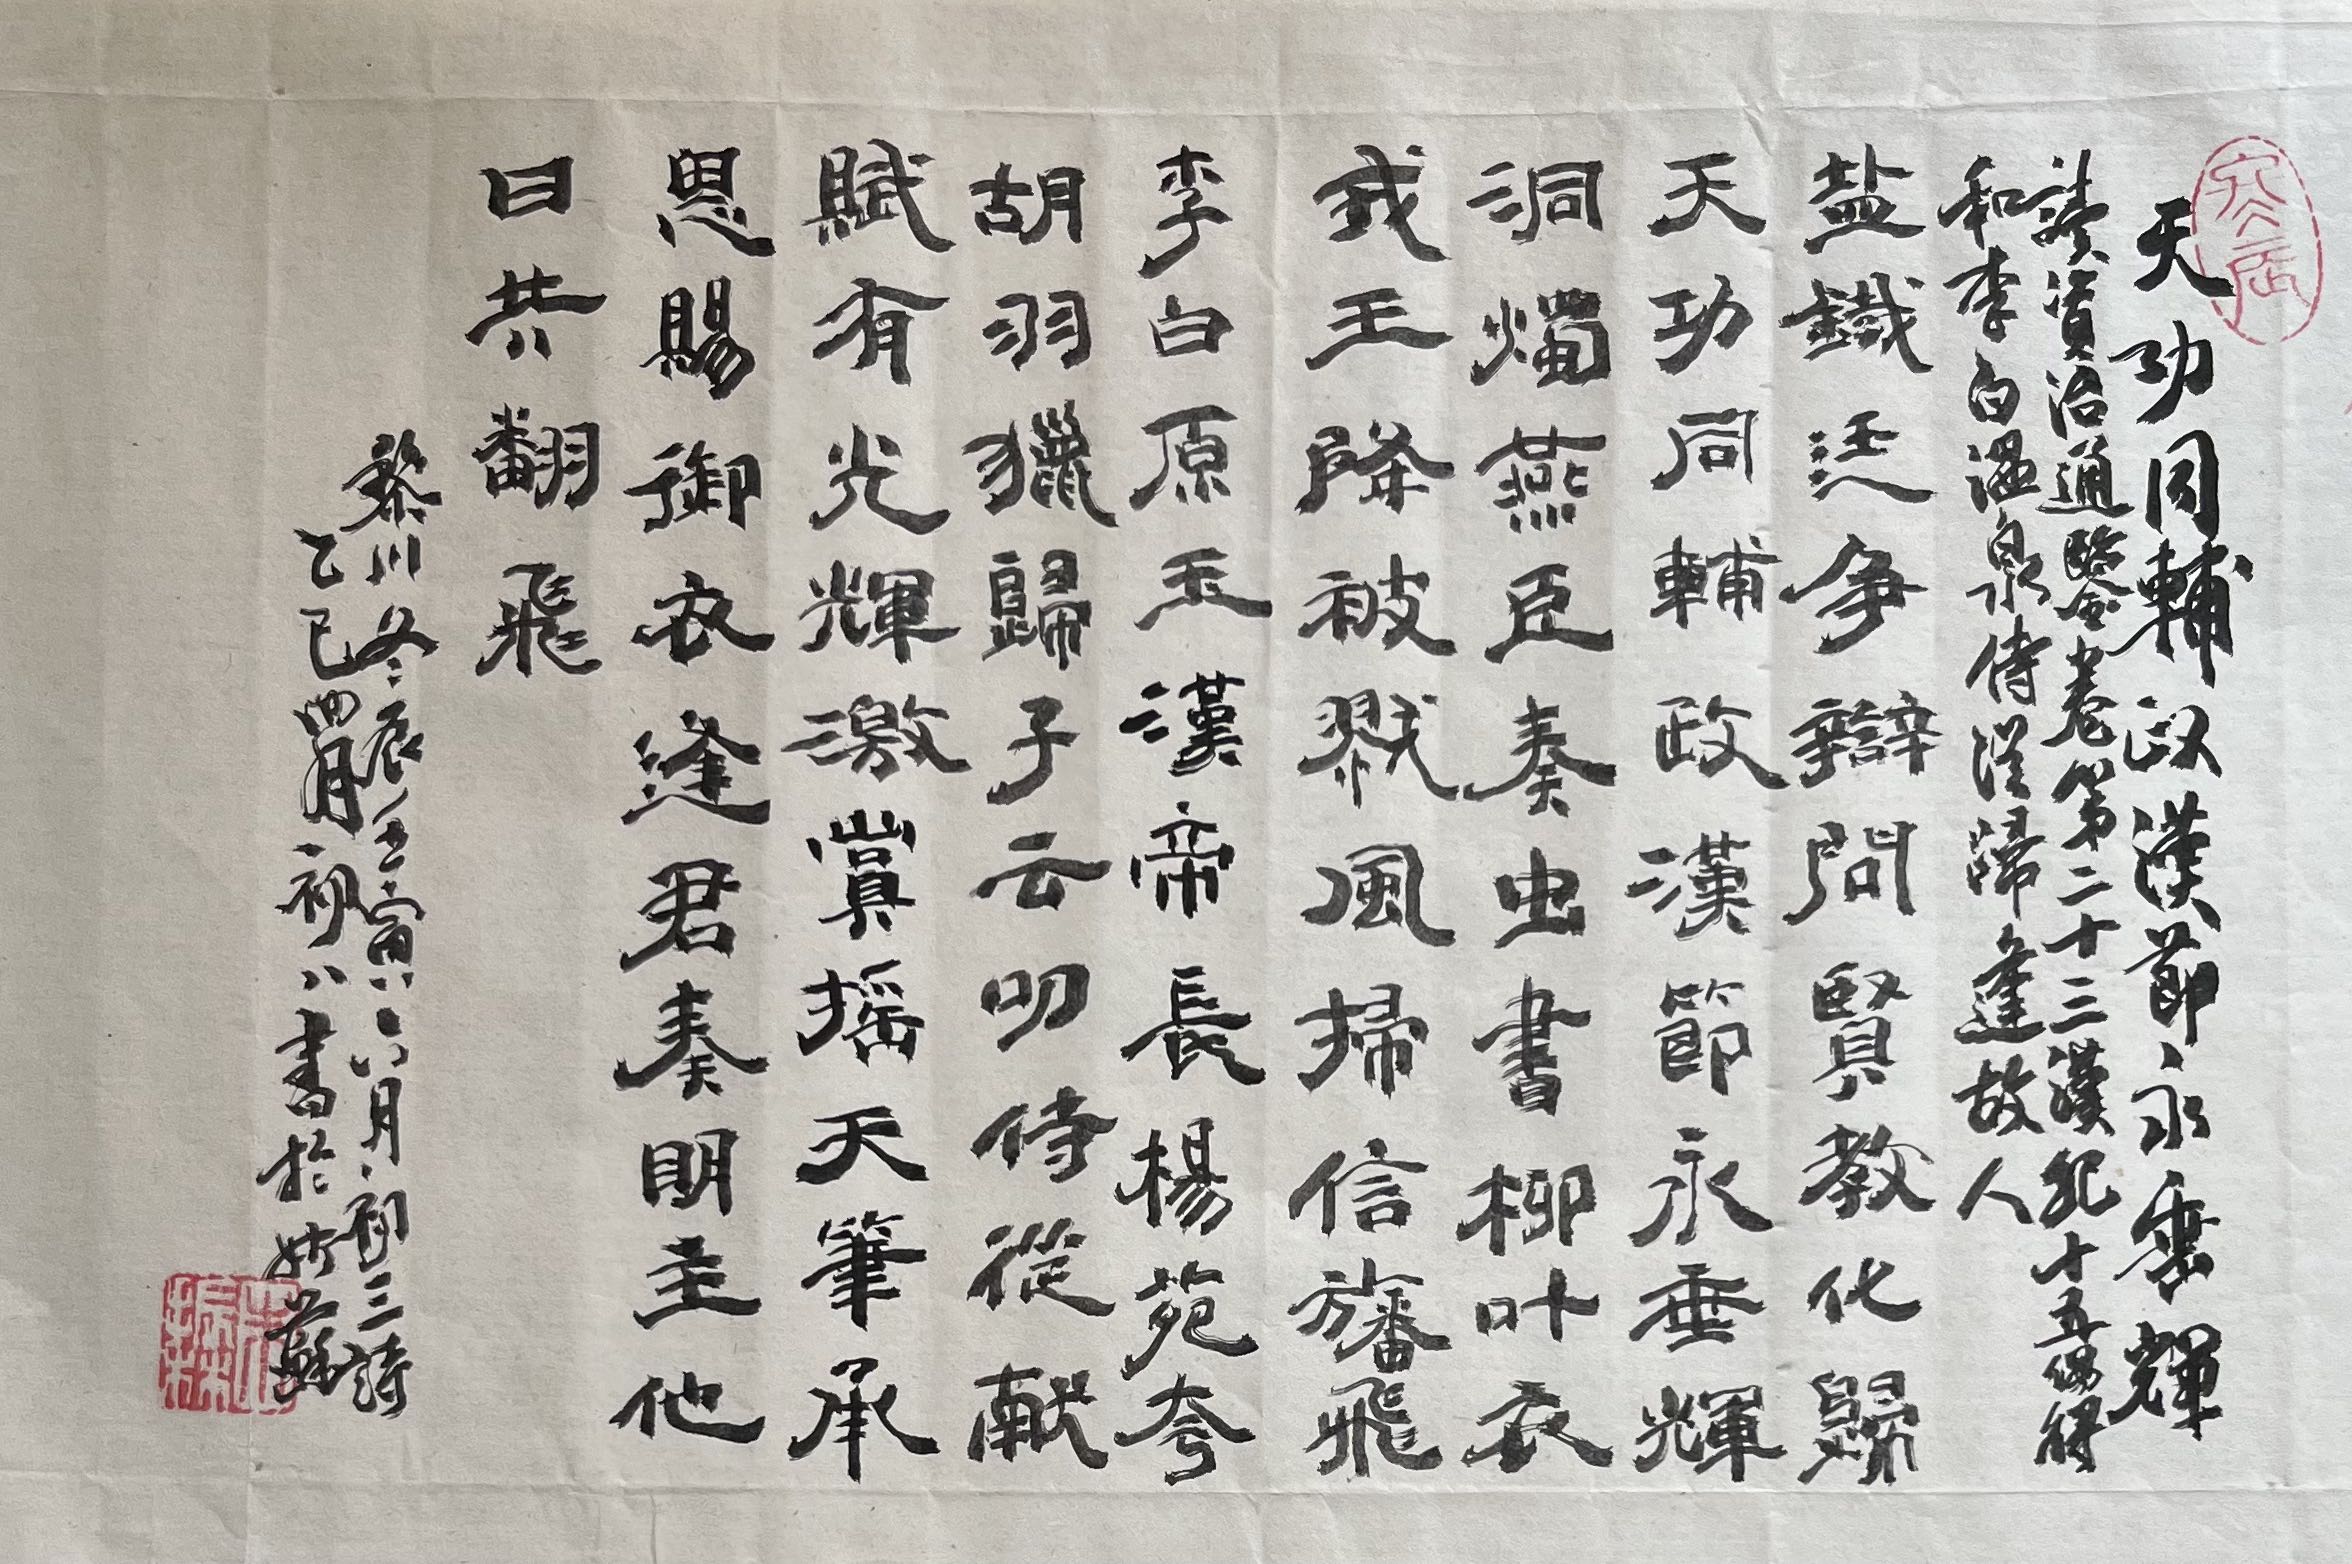 天功同輔政漢節永垂輝
讀資治通鑒卷第二十三漢紀十五偶得
和李白溫泉侍從歸逢故人
盐鐵廷争辯問賢教化歸
天功同輔政漢節永垂輝
洞燭燕臣奏虫書柳叶衣
戎王降被戮風掃信旛飛
李白原玉漢帝長楊苑夸
胡羽獵歸子云叨侍從献
賦有光輝激賞摇天筆承
恩賜御衣逢君奏明主他
日共翻飛
黎川冬辰壬寅六月初三詩
乙巳四月初八書於姑蘇